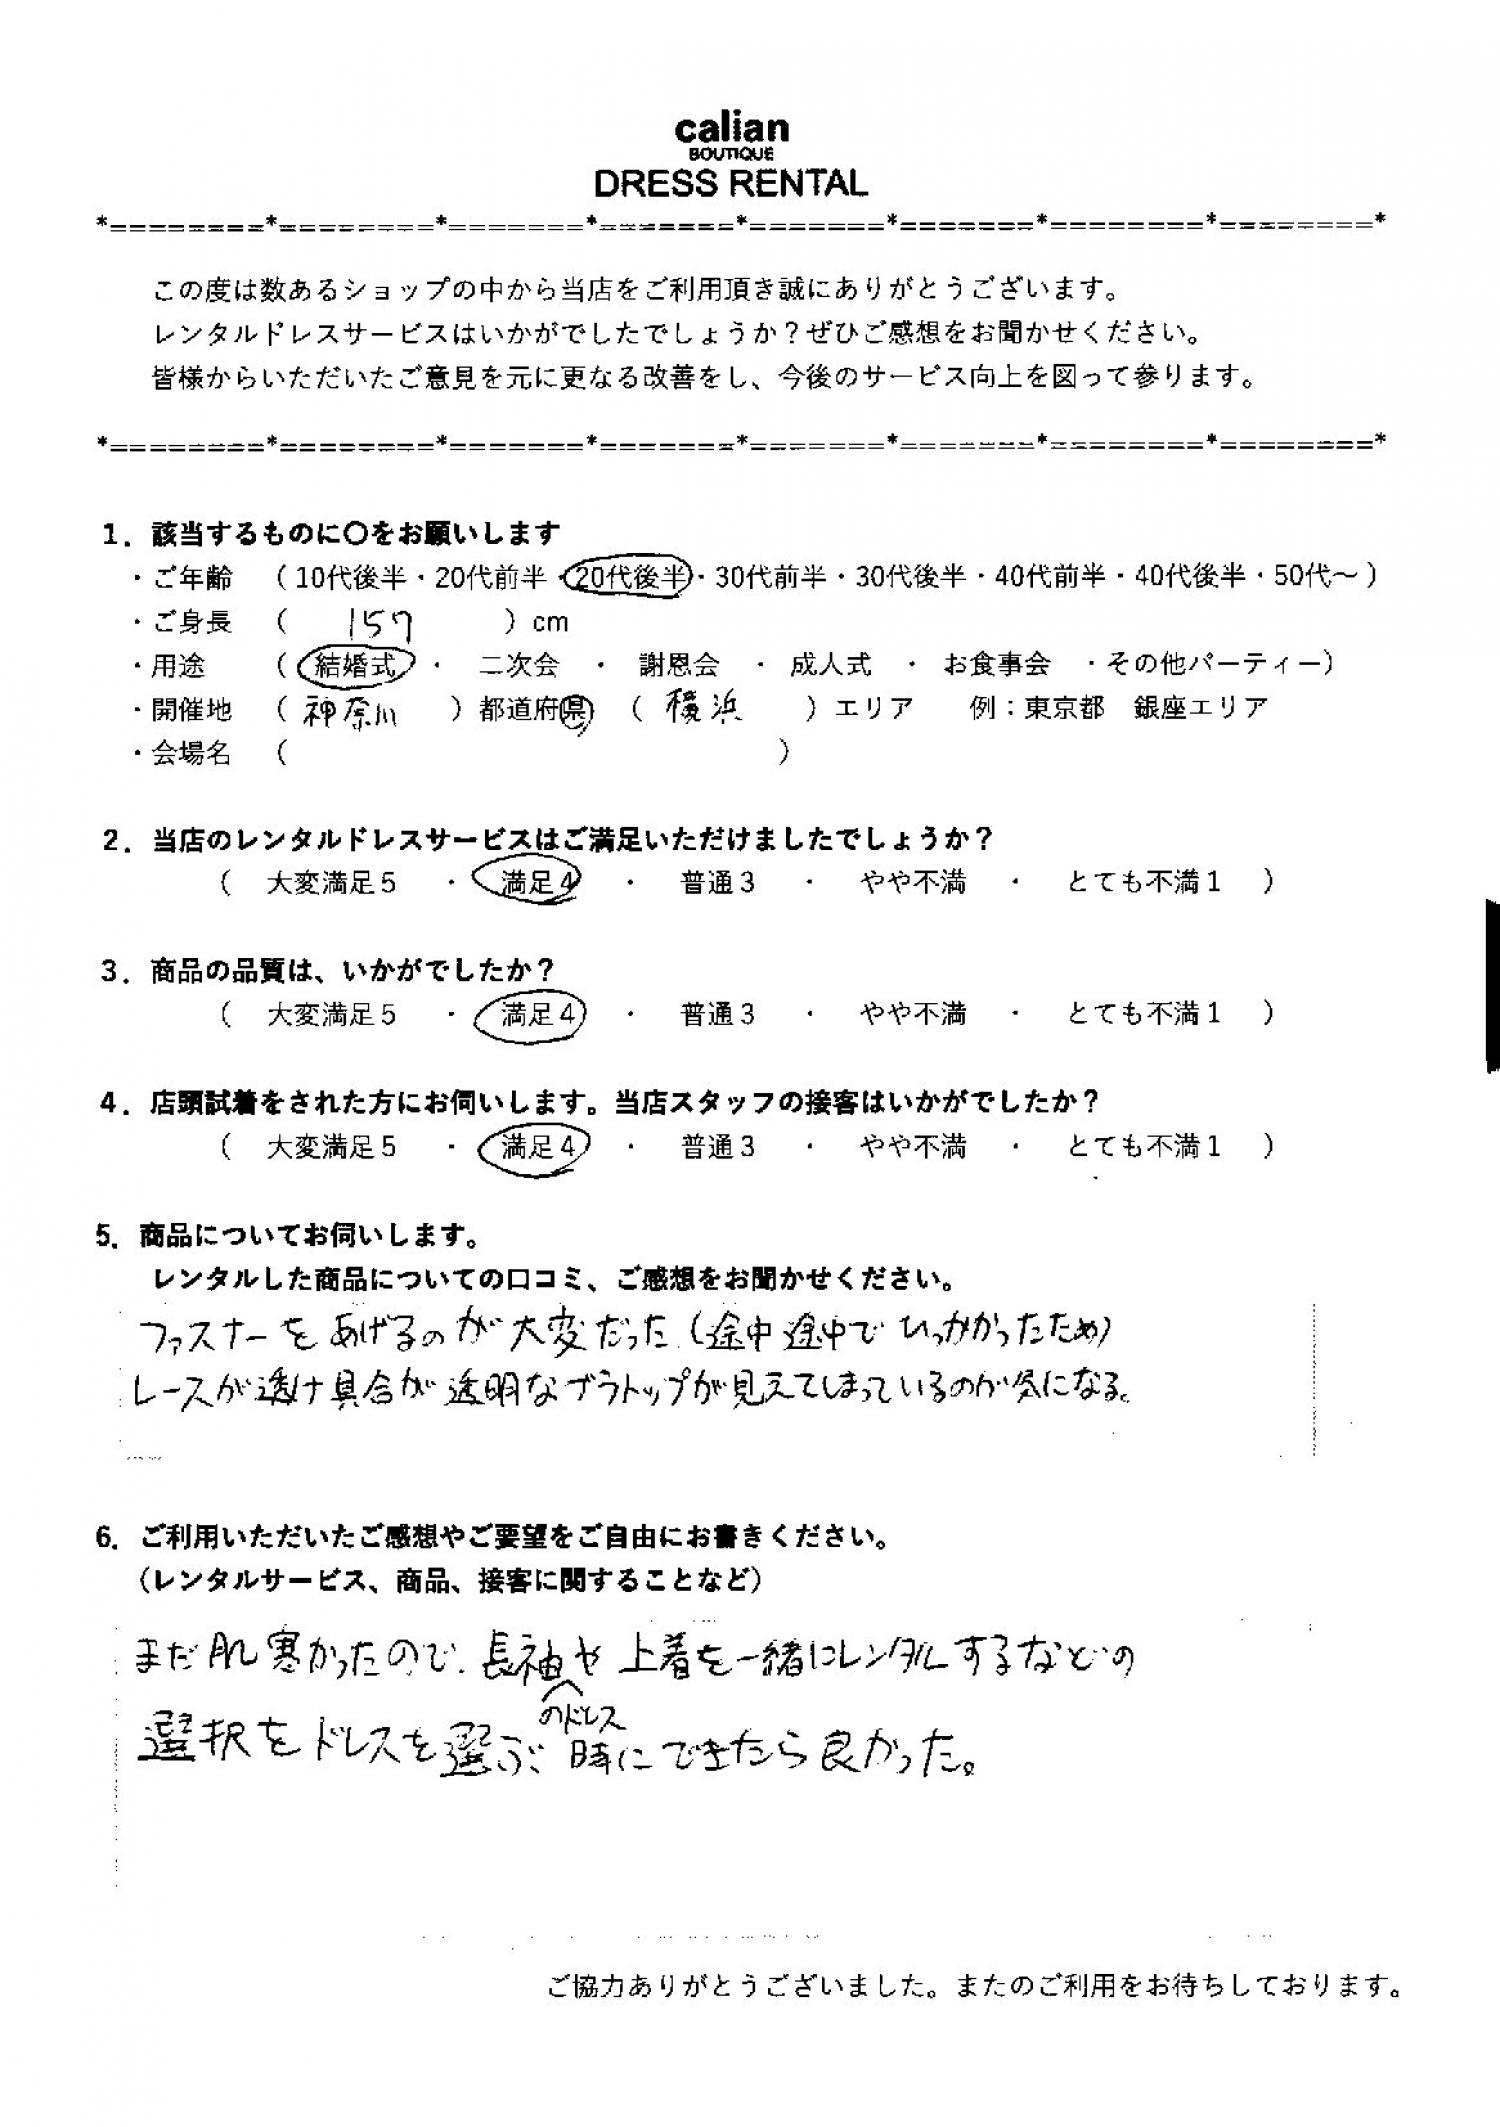 calian
BOUTIQUE
DRESS RENTAL
*========*========*=======*=======*=======*=======*========*========*
この度は数あるショップの中から当店をご利用頂き誠にありがとうございます。
レンタルドレスサービスはいかがでしたでしょうか？ぜひご感想をお聞かせください。
皆様からいただいたご意見を元に更なる改善をし、今後のサービス向上を図って参ります。
*========*========*=======*=======*=======*=======*========*========*
1．該当するものに〇をお願いします
・ご年齢 （10代後半・20代前半・20代後半・30代前半・30代後半・40代前半・40代後半・50代～）
・ご身長 （ 157 ）cm
・用途 （ 結婚式 ・ 二次会 ・ 謝恩会 ・ 成人式 ・ お食事会 ・その他パーティー）
・開催地 （ 神奈川 ）都道府県 （ 横浜 ）エリア 例：東京都 銀座エリア
・会場名 （ ）
2．当店のレンタルドレスサービスはご満足いただけましたでしょうか？
（ 大変満足５ ・ 満足４ ・ 普通３ ・ やや不満 ・ とても不満１ ）
3．商品の品質は、いかがでしたか？
（ 大変満足５ ・ 満足４ ・ 普通３ ・ やや不満 ・ とても不満１ ）
4．店頭試着をされた方にお伺いします。当店スタッフの接客はいかがでしたか？
（ 大変満足５ ・ 満足４ ・ 普通３ ・ やや不満 ・ とても不満１ ）
5．商品についてお伺いします。
レンタルした商品についての口コミ、ご感想をお聞かせください。
ファスナーをあげるのが大変だった（途中途中でひっかかったため）
レースが透け具合が透明なブラトップが見えてしまっているのが気になる。
6．ご利用いただいたご感想やご要望をご自由にお書きください。
（レンタルサービス、商品、接客に関することなど）
まだ肌寒かったので、長袖や上着を一緒にレンタルするなどの
のドレス
選択をドレスを選ぶ時にできたら良かった。
ご協力ありがとうございました。またのご利用をお待ちしております。